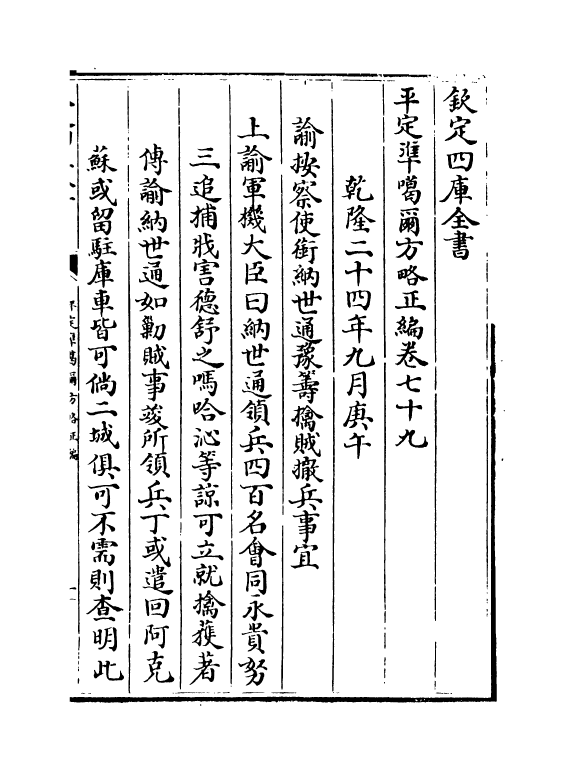 欽定四庫全書
平定準噶爾方略正編卷七十九
乾隆二十四年九月庚午
諭按察使銜納世通豫籌擒賊撤兵事宜
上諭軍機大臣曰納世通領兵四百名會同永貴努
三追捕戕害德舒之嗎哈沁等諒可立就擒獲著
傳諭納世通如勦賊事竣所領兵丁或遣回阿克
蘇或留駐庫車皆可倘二城俱可不需則查明此
平定準噶爾方略正編